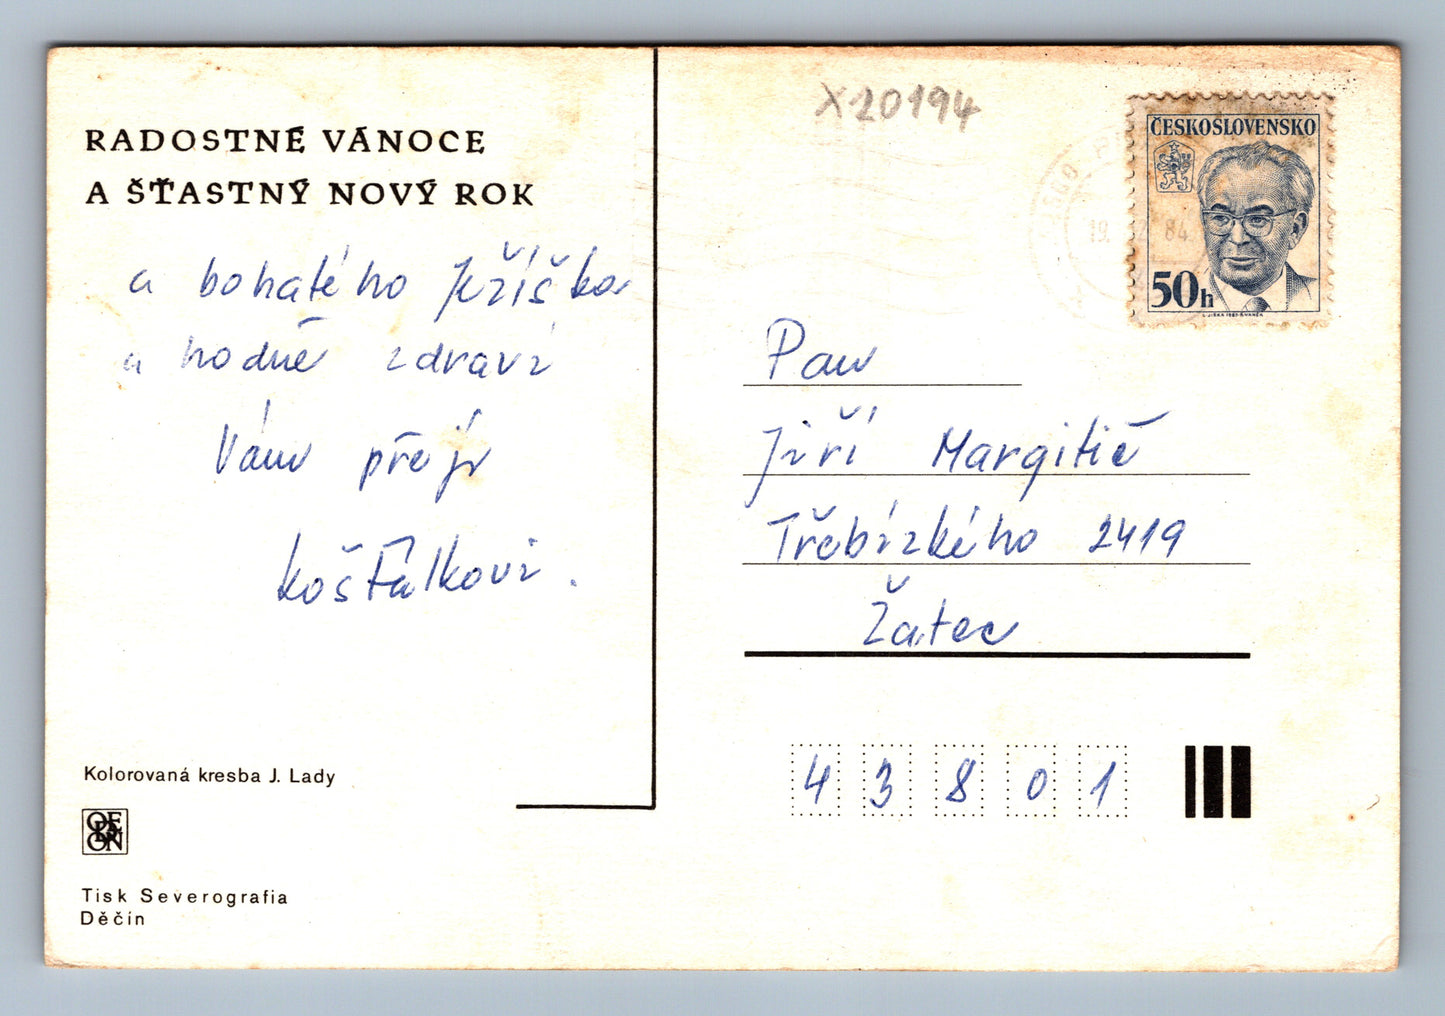 RADOSTNÉ VÁNOCE
A ŠŤASTNÝ NOVÝ ROK
a bohatého Ježíška
a hodně zdraví
Vám přejí
Košťálkovi.
Kolorovaná kresba J. Lady
ODEON
Tisk Severografia
Děčín
X20194
ČESKOSLOVENSKO
50h
19. 84
Pan
Jiří Margitič
Třebízkého 2419
Žatec
43801